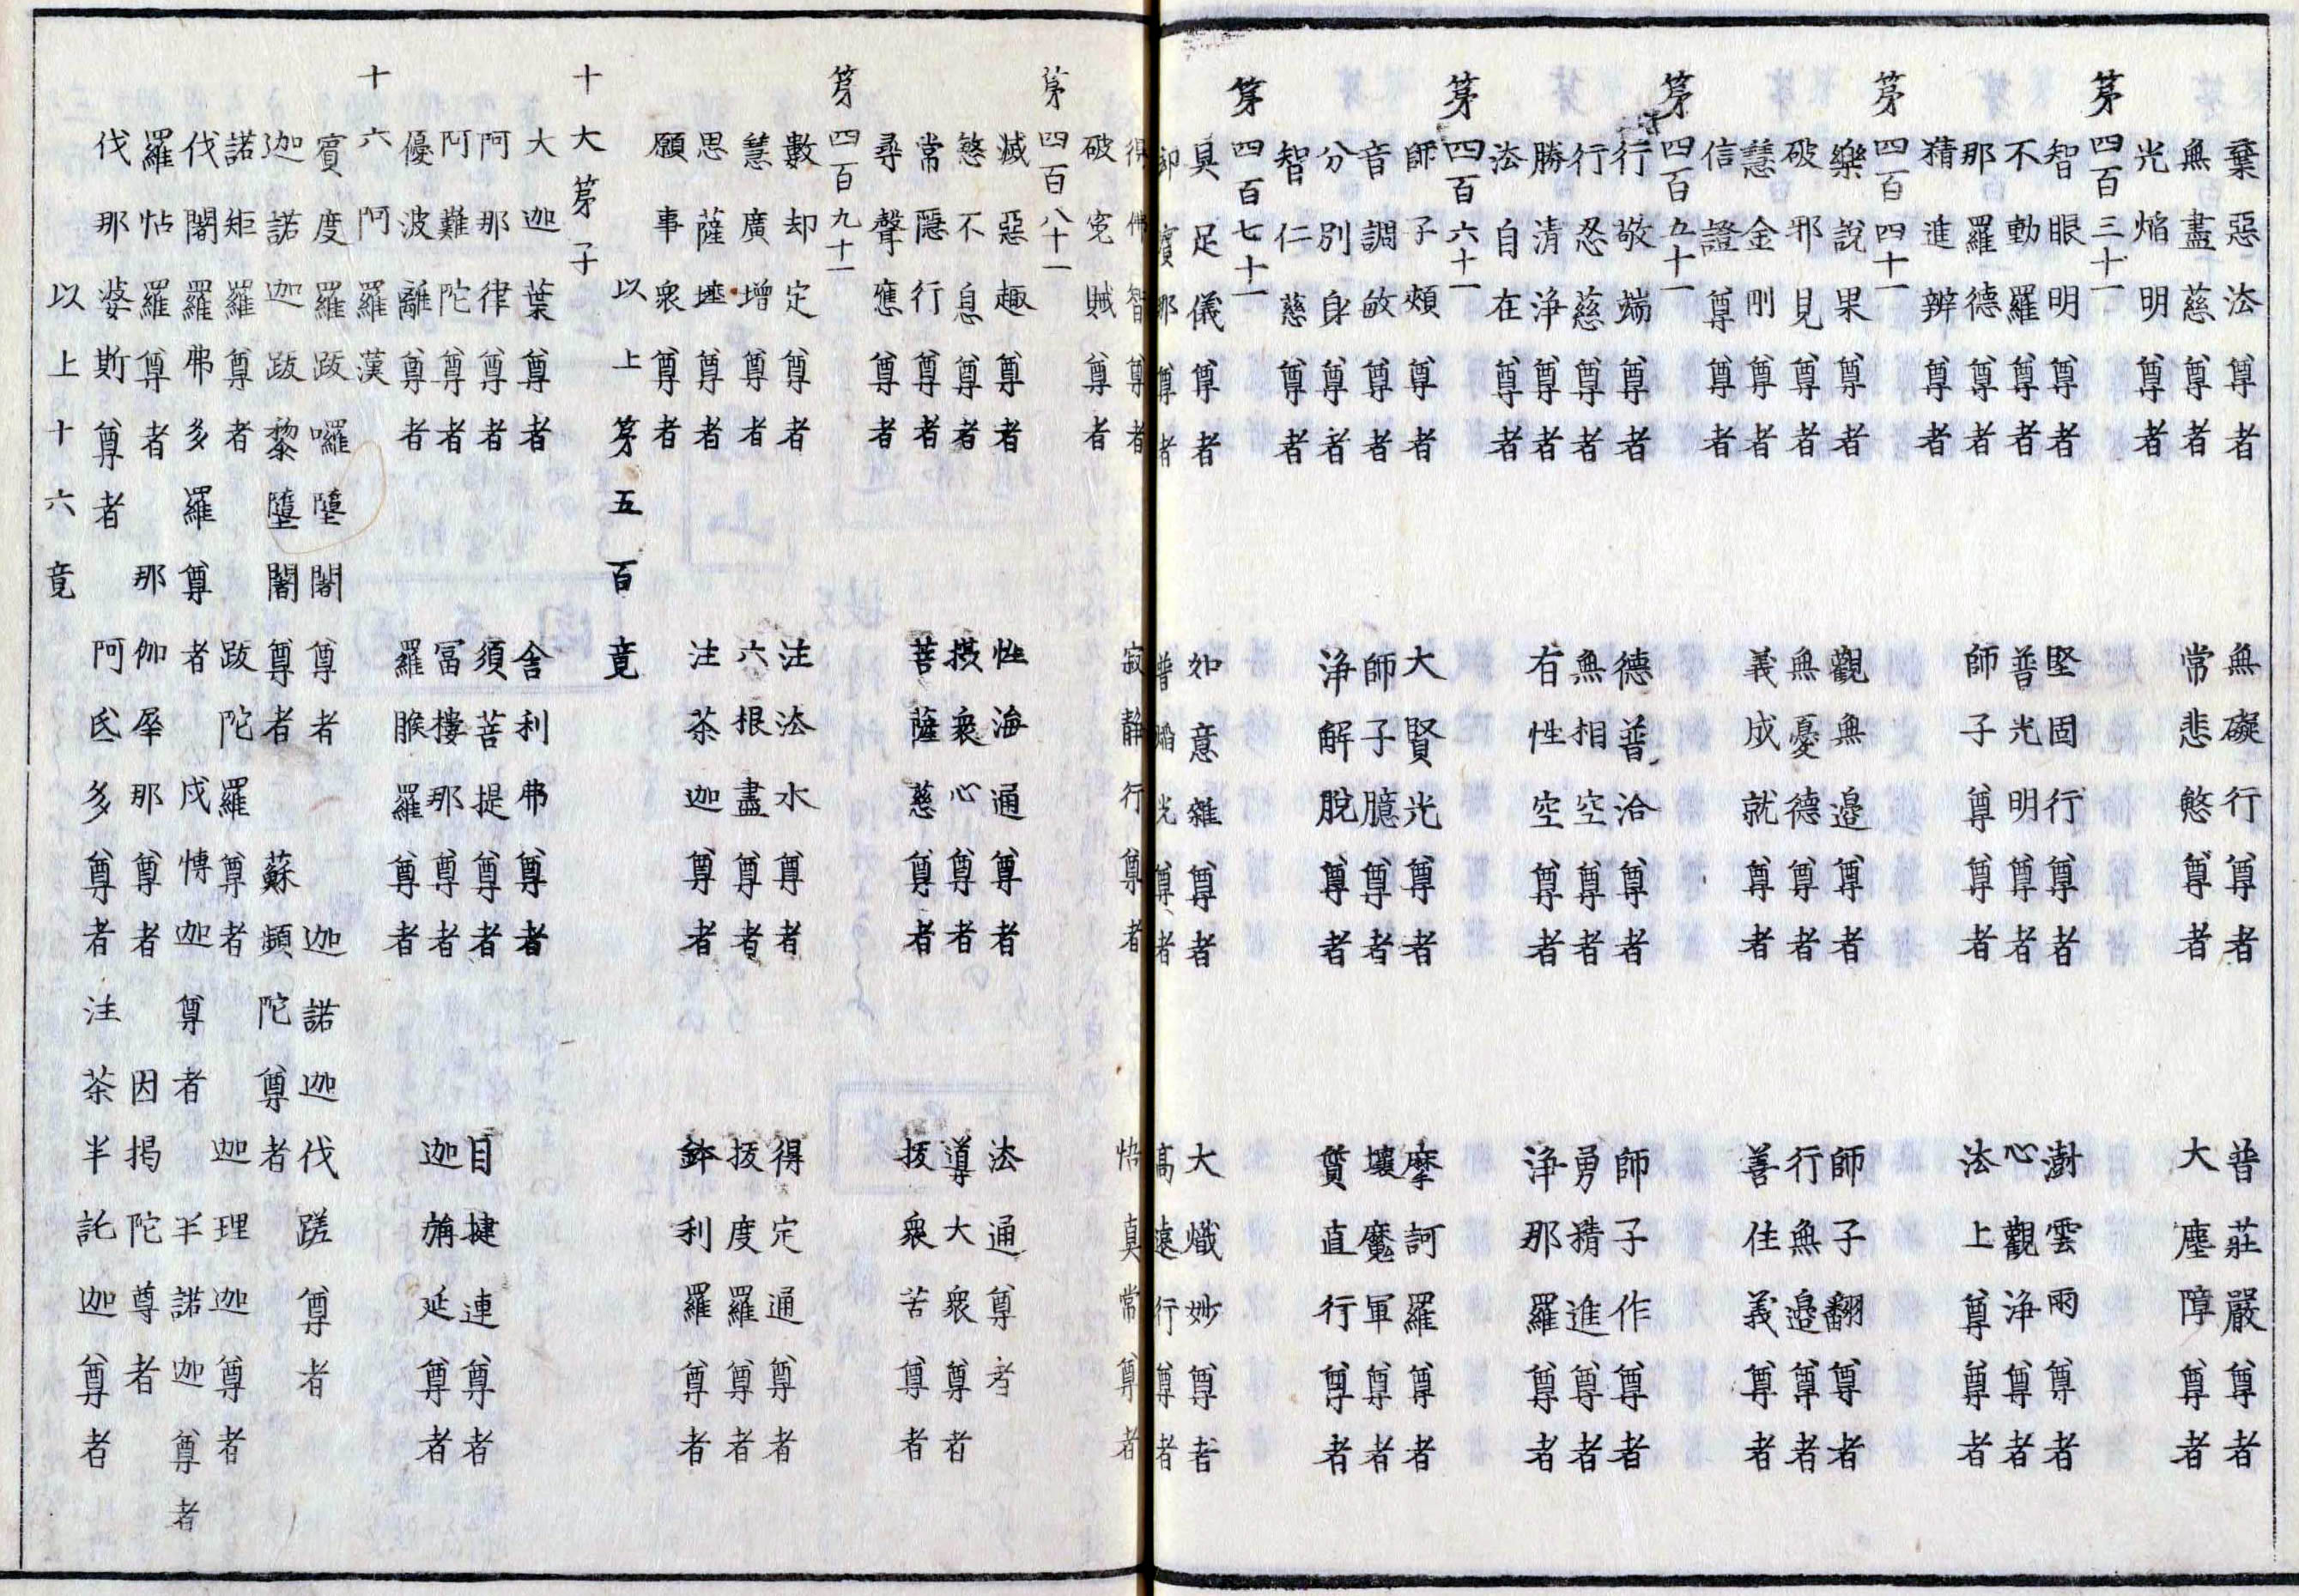 棄惡法尊者 無礙行尊者 普莊嚴尊者
無盡慈尊者 常悲愍尊者 大塵障尊者
光焔明尊者
第四百三十一
智眼明尊者 堅固行尊者 澍雲雨尊者
不動羅尊者 普光明尊者 心觀淨尊者
那羅德尊者 師子尊尊者 法上尊尊者
精進辨尊者
第四百四十一
樂說果尊者 觀無邊尊者 師子翻尊者
破邪見尊者 無憂德尊者 行無邊尊者
慧金剛尊者 義成就尊者 善住義尊者
信證尊尊者
第四百五十一
行敬端尊者 德普洽尊者 師子作尊者
行忍慈尊者 無相空尊者 勇精進尊者
勝清淨尊者 有性空尊者 淨那羅尊者
法自在尊者
第四百六十一
師子頰尊者 大賢光尊者 摩訶羅尊者
音調敏尊者 師子臆尊者 壞魔軍尊者
分別身尊者 淨解脫尊者 質直行尊者
智仁慈尊者
第四百七十一
具足儀尊者 如意雜尊者 大熾妙尊者
卻賓那尊者 普焔光尊者 高遠行尊者
得佛智尊者 寂靜行尊者 悟真常尊者
破寃賊尊者
第四百八十一
滅惡趣尊者 性海通尊者 法通尊者
愍不息尊者 摂衆心尊者 導大衆尊者
常隱行尊者 菩薩慈尊者 抜衆苦尊者
尋聲應尊者
第四百九十一
數却定尊者 注法水尊者 得定通尊者
慧廣增尊者 六根盡尊者 抜度羅尊者
思薩埵尊者 注茶迦尊者 鉢利羅尊者
願事衆尊者
以上第五百竟
十大第子
大迦葉尊者 舍利弗尊者
阿那律尊者 須菩提尊者 目揵連尊者
阿難陀尊者 冨樓那尊者 迦旃延尊者
優波離尊者 羅睺羅尊者
十六阿羅漢
賓度羅跋囉墮闍尊者 迦諾迦伐蹉尊者
迦諾迦跋黎墮闍尊者 蘇頻陀尊者
諾矩羅尊者 跋陀羅尊者 迦理迦尊者
伐闍羅弗多羅尊者 戍博迦尊者 半諾迦尊者
羅怙羅尊者 那伽犀那尊者 因揭陀尊者
伐那婆斯尊者 阿氐多尊者 注茶半託迦尊者
以上十六竟